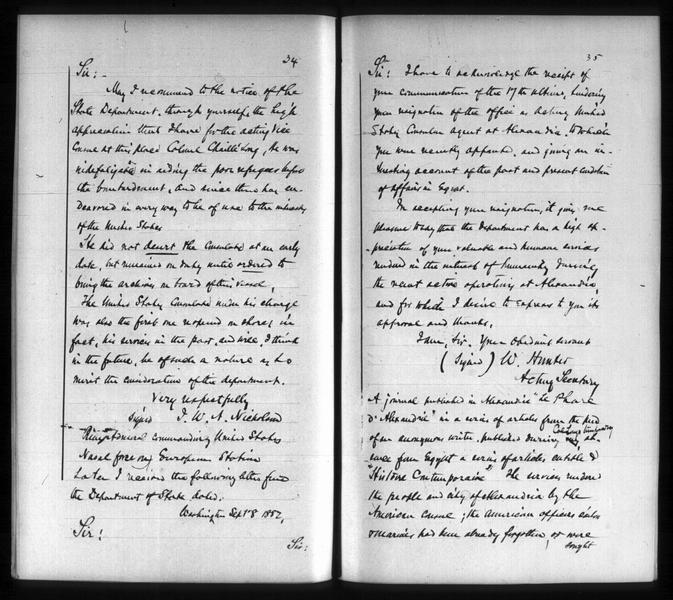 34
Sir:-
May I recommend to the notice of the
State Department, through yourself, the high
appreciation that I have for the acting Vice
Consul at this place Colonel Chaillé Long, he was
indefatigable in aiding the poor refugees before
the bombardment, and since then has en-
deavored in every way to be of use to the
of the United States
He did not desert the Consulate at an early
date, but remained on duty until ordered to
bring the archives on board of this vessel.
The United States Consulate under his charge
was also the first one reopened on shore; in
fact, his services in the past, and will, I think
in the future, be of such a nature as to
merit the consideration of the department.
Very respectfully
signed J. W. A. Nicholson
Rear Admiral commanding United States
Naval force on European Station
Later I received the following letter from
the Department of State dated.
Washington Sept 8 1882,
Sir!
Sir:
35
Sir: I have to acknowledge the receipt of
your communication of the 17th ultimo, tendering
your resignation of the office as Acting United
States Consular agent at Alexandria, to which
you were recently appointed, and giving an in-
teresting account of the past and present condition
of affairs in Egypt.
In accepting your resignation, it gives me
pleasure to say that the Department has a high ap-
preciation of your valuable and humane services
rendered in the interest of humanity during
the recent active operations at Alexandria,
and for which I desire to express to you its
approval and thanks.
I am, Sir, Your obedient servant
(Signed) W. Hunter
Acting Secretary
A journal published in Alexandria "Le Phare
d'Alexandrie" in a series of articles from the pen
of an anonymous writer published during my ab-
sence from Egypt a series of articles entitled
"Histoire Contemporaine" The services rendered
the people and city of Alexandria by the
American Consul; the American officers sailors
& marines had been already forgotten, or were
sought